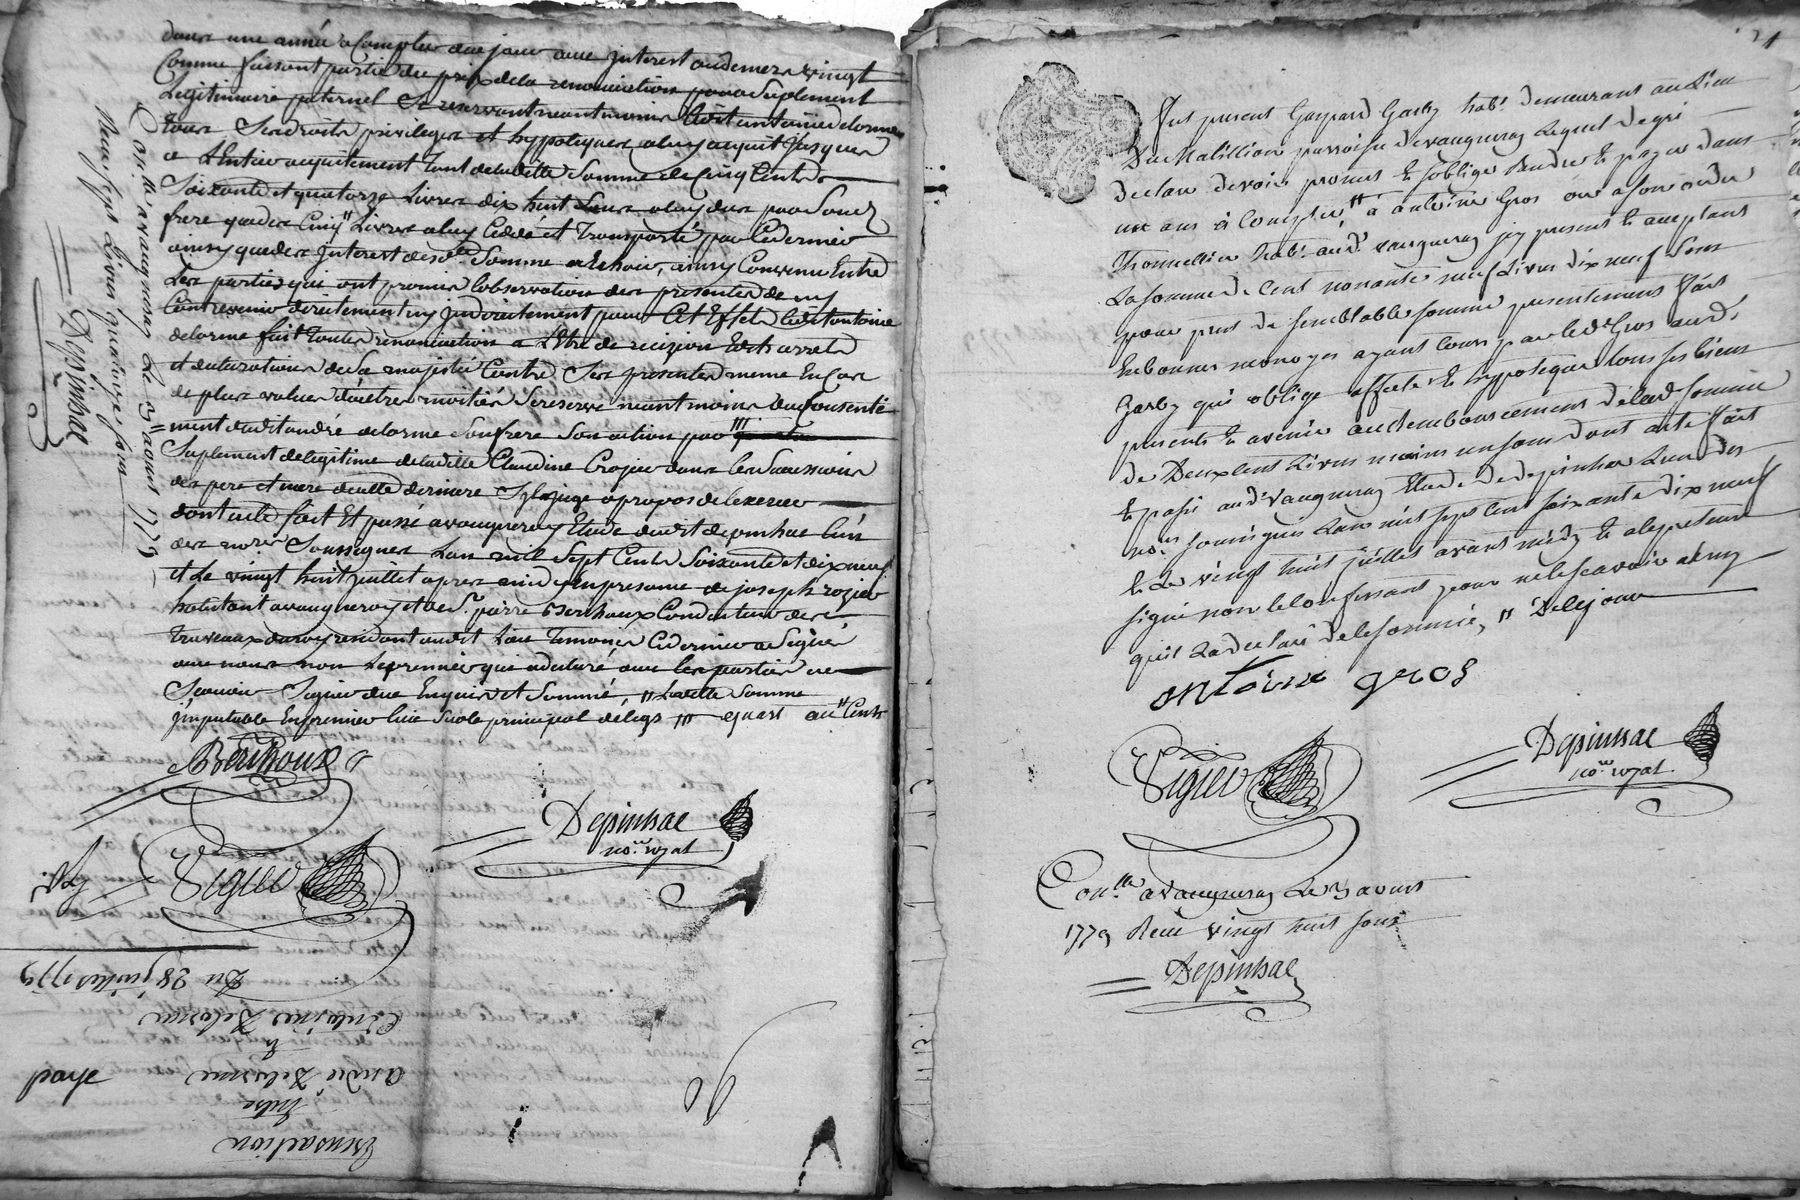 dans une année a Compter de ce jour avec Interest au denier vingt
Comme faisant partie du prix de la renonciation pour Suplement
Legitimaire paternel Se reservant neantmoins Ledit antoine delorme
tous Ses droits privileges et hypoteques a luy acquit Jusques
a L'Entier aquittement tant de ladite Somme de Cinq Cents
Soixante et quatorze Livres dix huit Sous a luy dus par Son d
frere que des Cinq Livres a luy Cedée et transporté par Ce dernier
ainsy que des Interest desd. Somme a Echoir, ainsy Convenu Entre
Les parties qui ont promis l'observation des presentes de ny
Contrevenir directement ny Indirectement pour Cet Effet Ledit antoine
delorme fait toutes renonciation a L'Etre de rezizion Edits arrets
et declarations de Sa majesté Contre Ses presentes meme En Cas
de plus values d'autres moitiés Se reserve neant moins du Consente
=ment dudit andré delorme Son frere Son action pour
Suplement de legitime de ladite Claudine Crozier dans les Successions
des pere et mere de cette derniere Sy lajuge a propos de l'exercer
dont acte fait Et passé a vaugneray Etude dudit depinhac L'un
des nores Soussignes L'an mil Sept Cents Soixante et dix neuf
et Le vingt huit juillet apres midy En presence de joseph rozier
habitant a vaugneray et de Sr. pierre Berthoux Conducteur des
travaux du roy residant audit Lieu temoins Ce dernier a Signé
avec nous non Le premier qui a declaré avec les parties ne
Scavoir Signer due Enquis et Sommé, " Laditte Somme
jmputable En premier lieu Sur le principal de legs "" quart au " Cents
Berthoux
Depinhac
nore. royal
Vigier
Con.lle a vaugneray Le 3 aoust 1779
Reçu Sept Livres quatorze sous
Depinhac
Du 28 juillet 1779
Transaction
Entre
andré Delorme
&
Antoine Delorme
payé
21
Fut present Gaspard Garby habt. demeurant au Lieu
Du Malillion parroisse de vaugneray Lequel de gré
declare devoir promet & s'oblige rendre & payer dans
un ans à Compter " à antoine Gros ou a son ordre
Thonnellier habt. aud. vaugneray jcy present & aceptant
La somme de Cent nonante neuf Livres dix neuf Sous
pour prest de semblable somme presentement fait
En bonnes monoyes ayant Cours par led. Gros aud.
Garby qui oblige affecte & hyppoteque tous ses biens
presents & avenir au Remboursement de lad. somme
de Deux Cent Livres moins un sous dont acte fait
& passé aud. Vaugneray Etude de depinhac L'un des
nores. soussignés L'an mil sept cent soixante dix neuf
& Le vingt huit juillet avant midy & a le preteur
signé non le Confessant pour ne le scavoir ainsy
qu'il L'a declaré de le sommé, " De Ce jour
antoine gros
Vigier
Depinhac
nore. royal
Con.lle a Vaugneray Le 3 aoust
1779 Reçu vingt huit sous
Depinhac